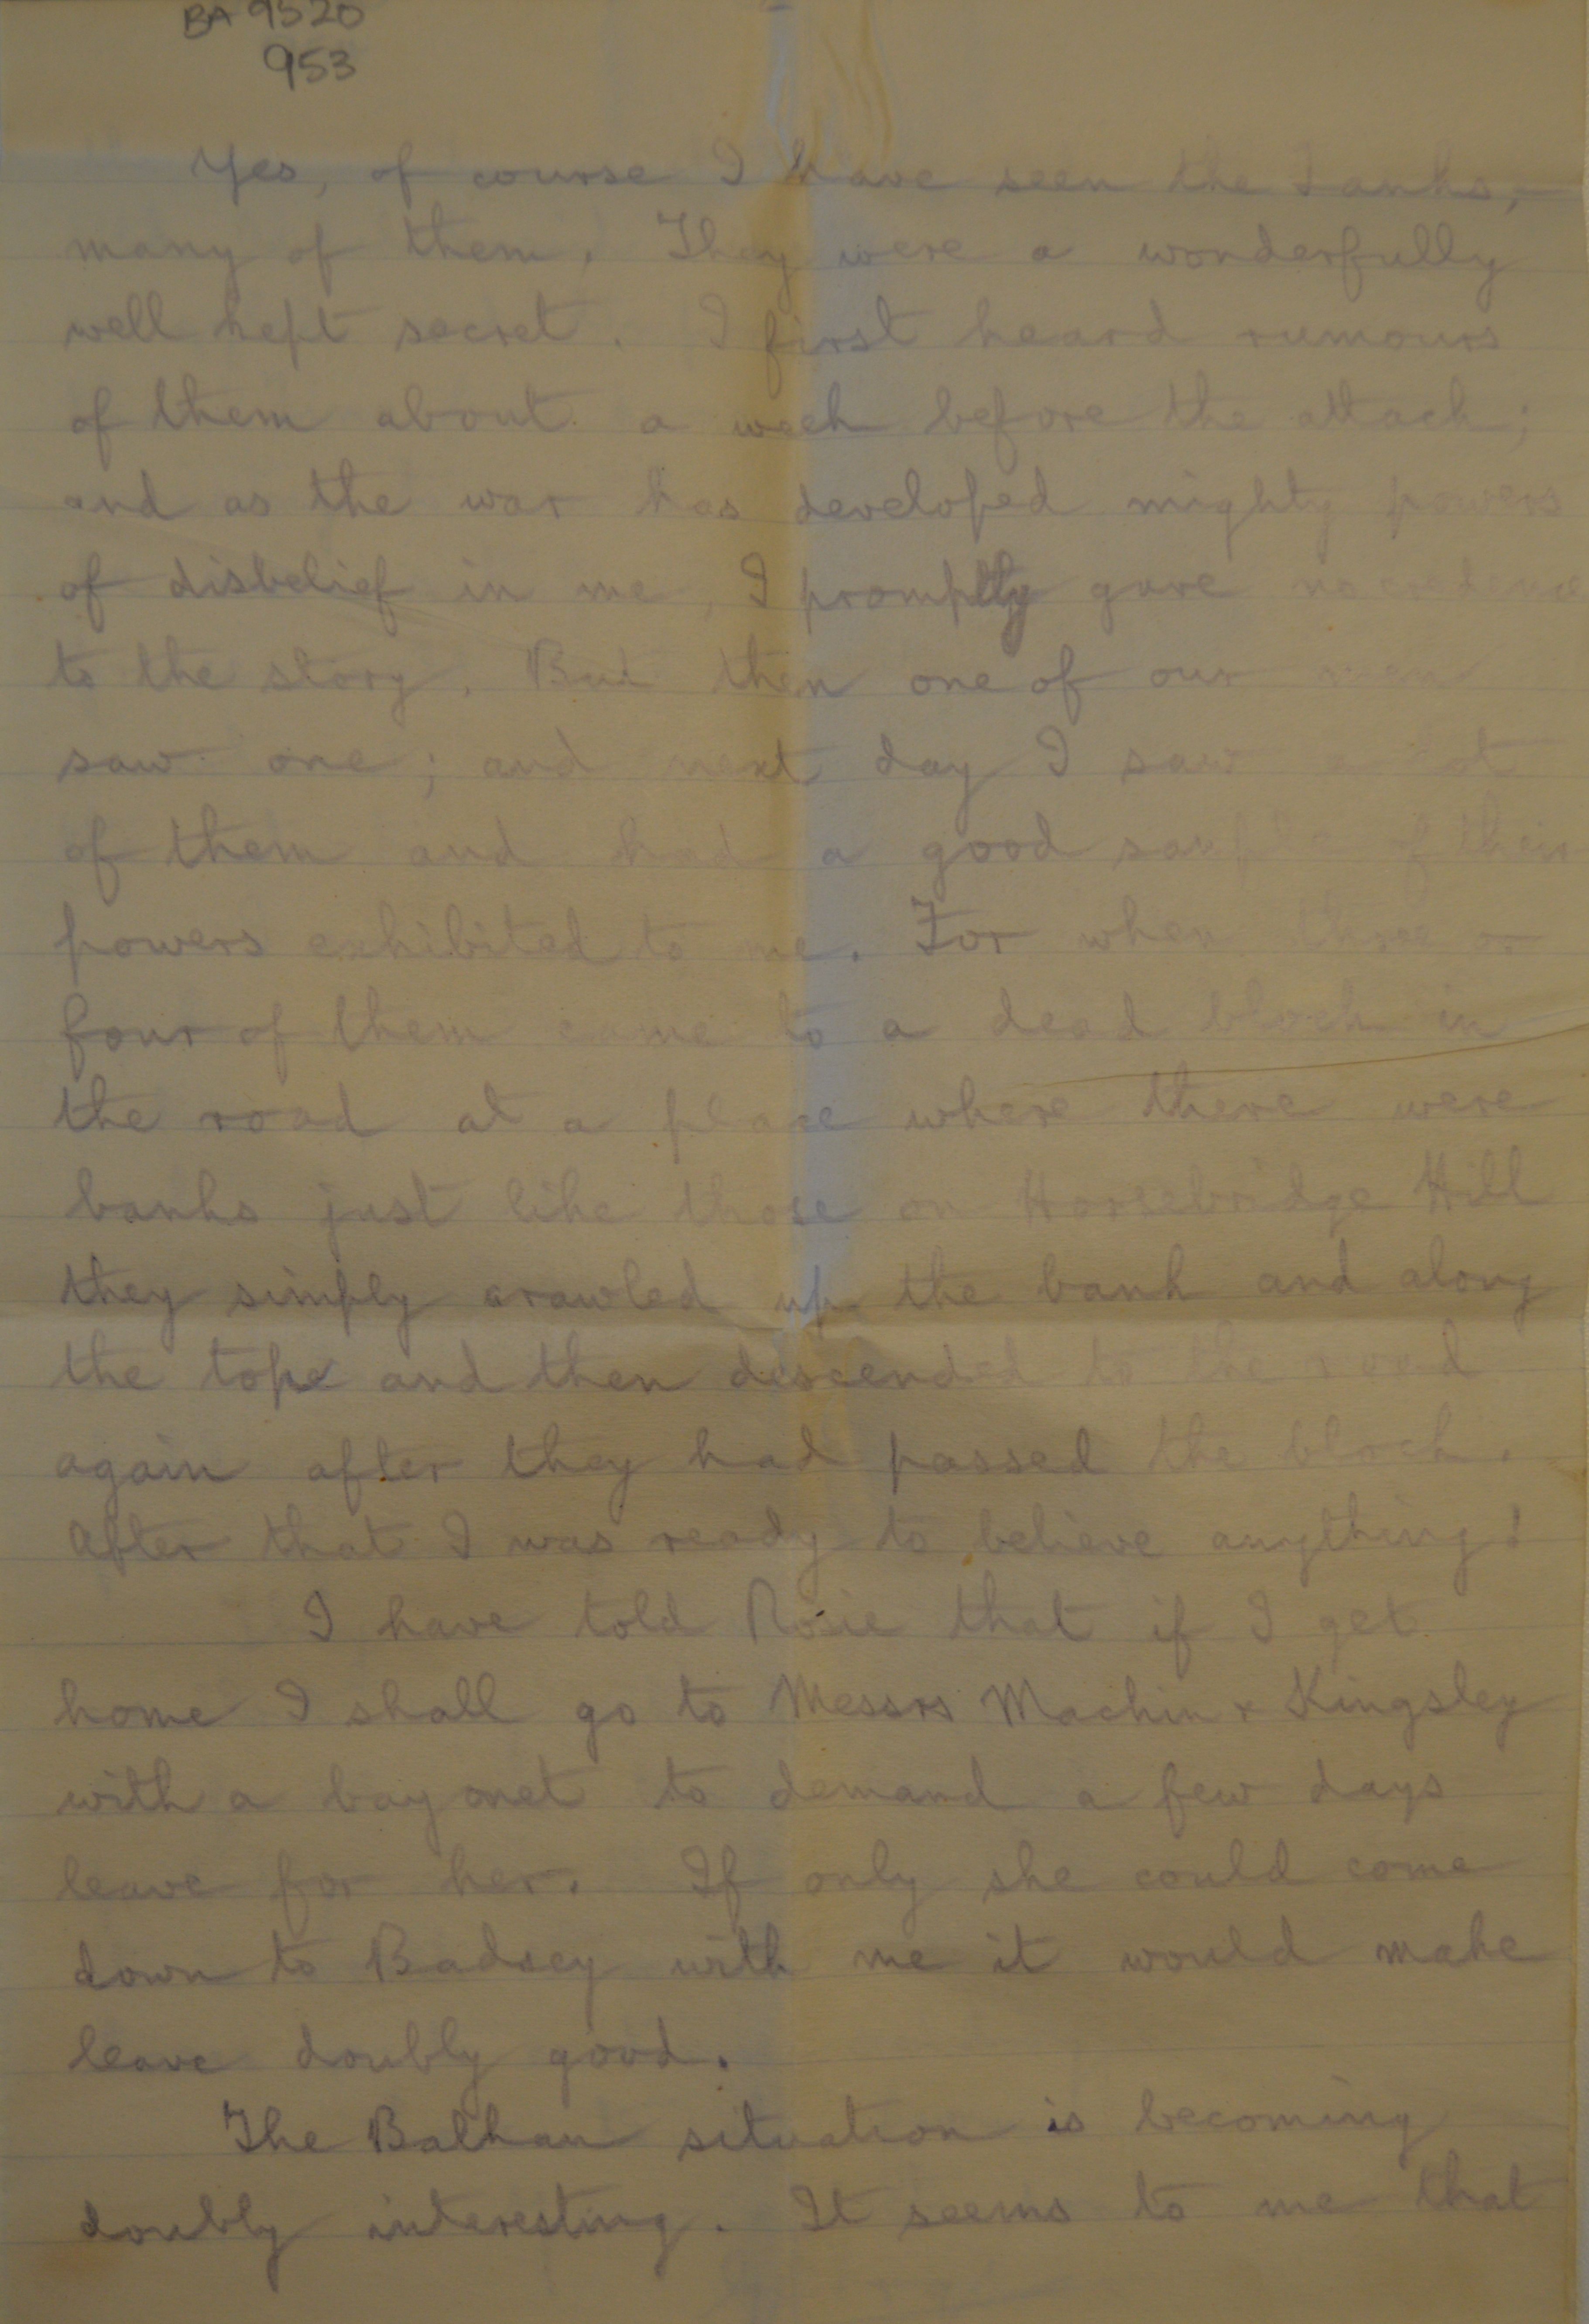 BA 9520
953
Yes, of course I have seen the Tanks,
many of them. They were a wonderfully
well kept secret. I first heard rumours
of them about a week before the attack;
and as the war has developed mighty powers
of disbelief in me, I promptly gave no credence
to the story. But then one of our men
saw one; and next day I saw a lot
of them and had a good sample of their
powers exhibited to me. For when three or
four of them came to a dead block in
the road at a place where there were
banks just like those on Horsebridge Hill
they simply crawled up the bank and along
the top and then descended to the road
again after they had passed the block.
After that I was ready to believe anything!
I have told Rosie that if I get
home I shall go to Messrs Machin & Kingsley
with a bayonet to demand a few days
leave for her. If only she could come
down to Badsey with me it would make
leave doubly good.
The Balkan situation is becoming
doubly interesting. It seems to me that